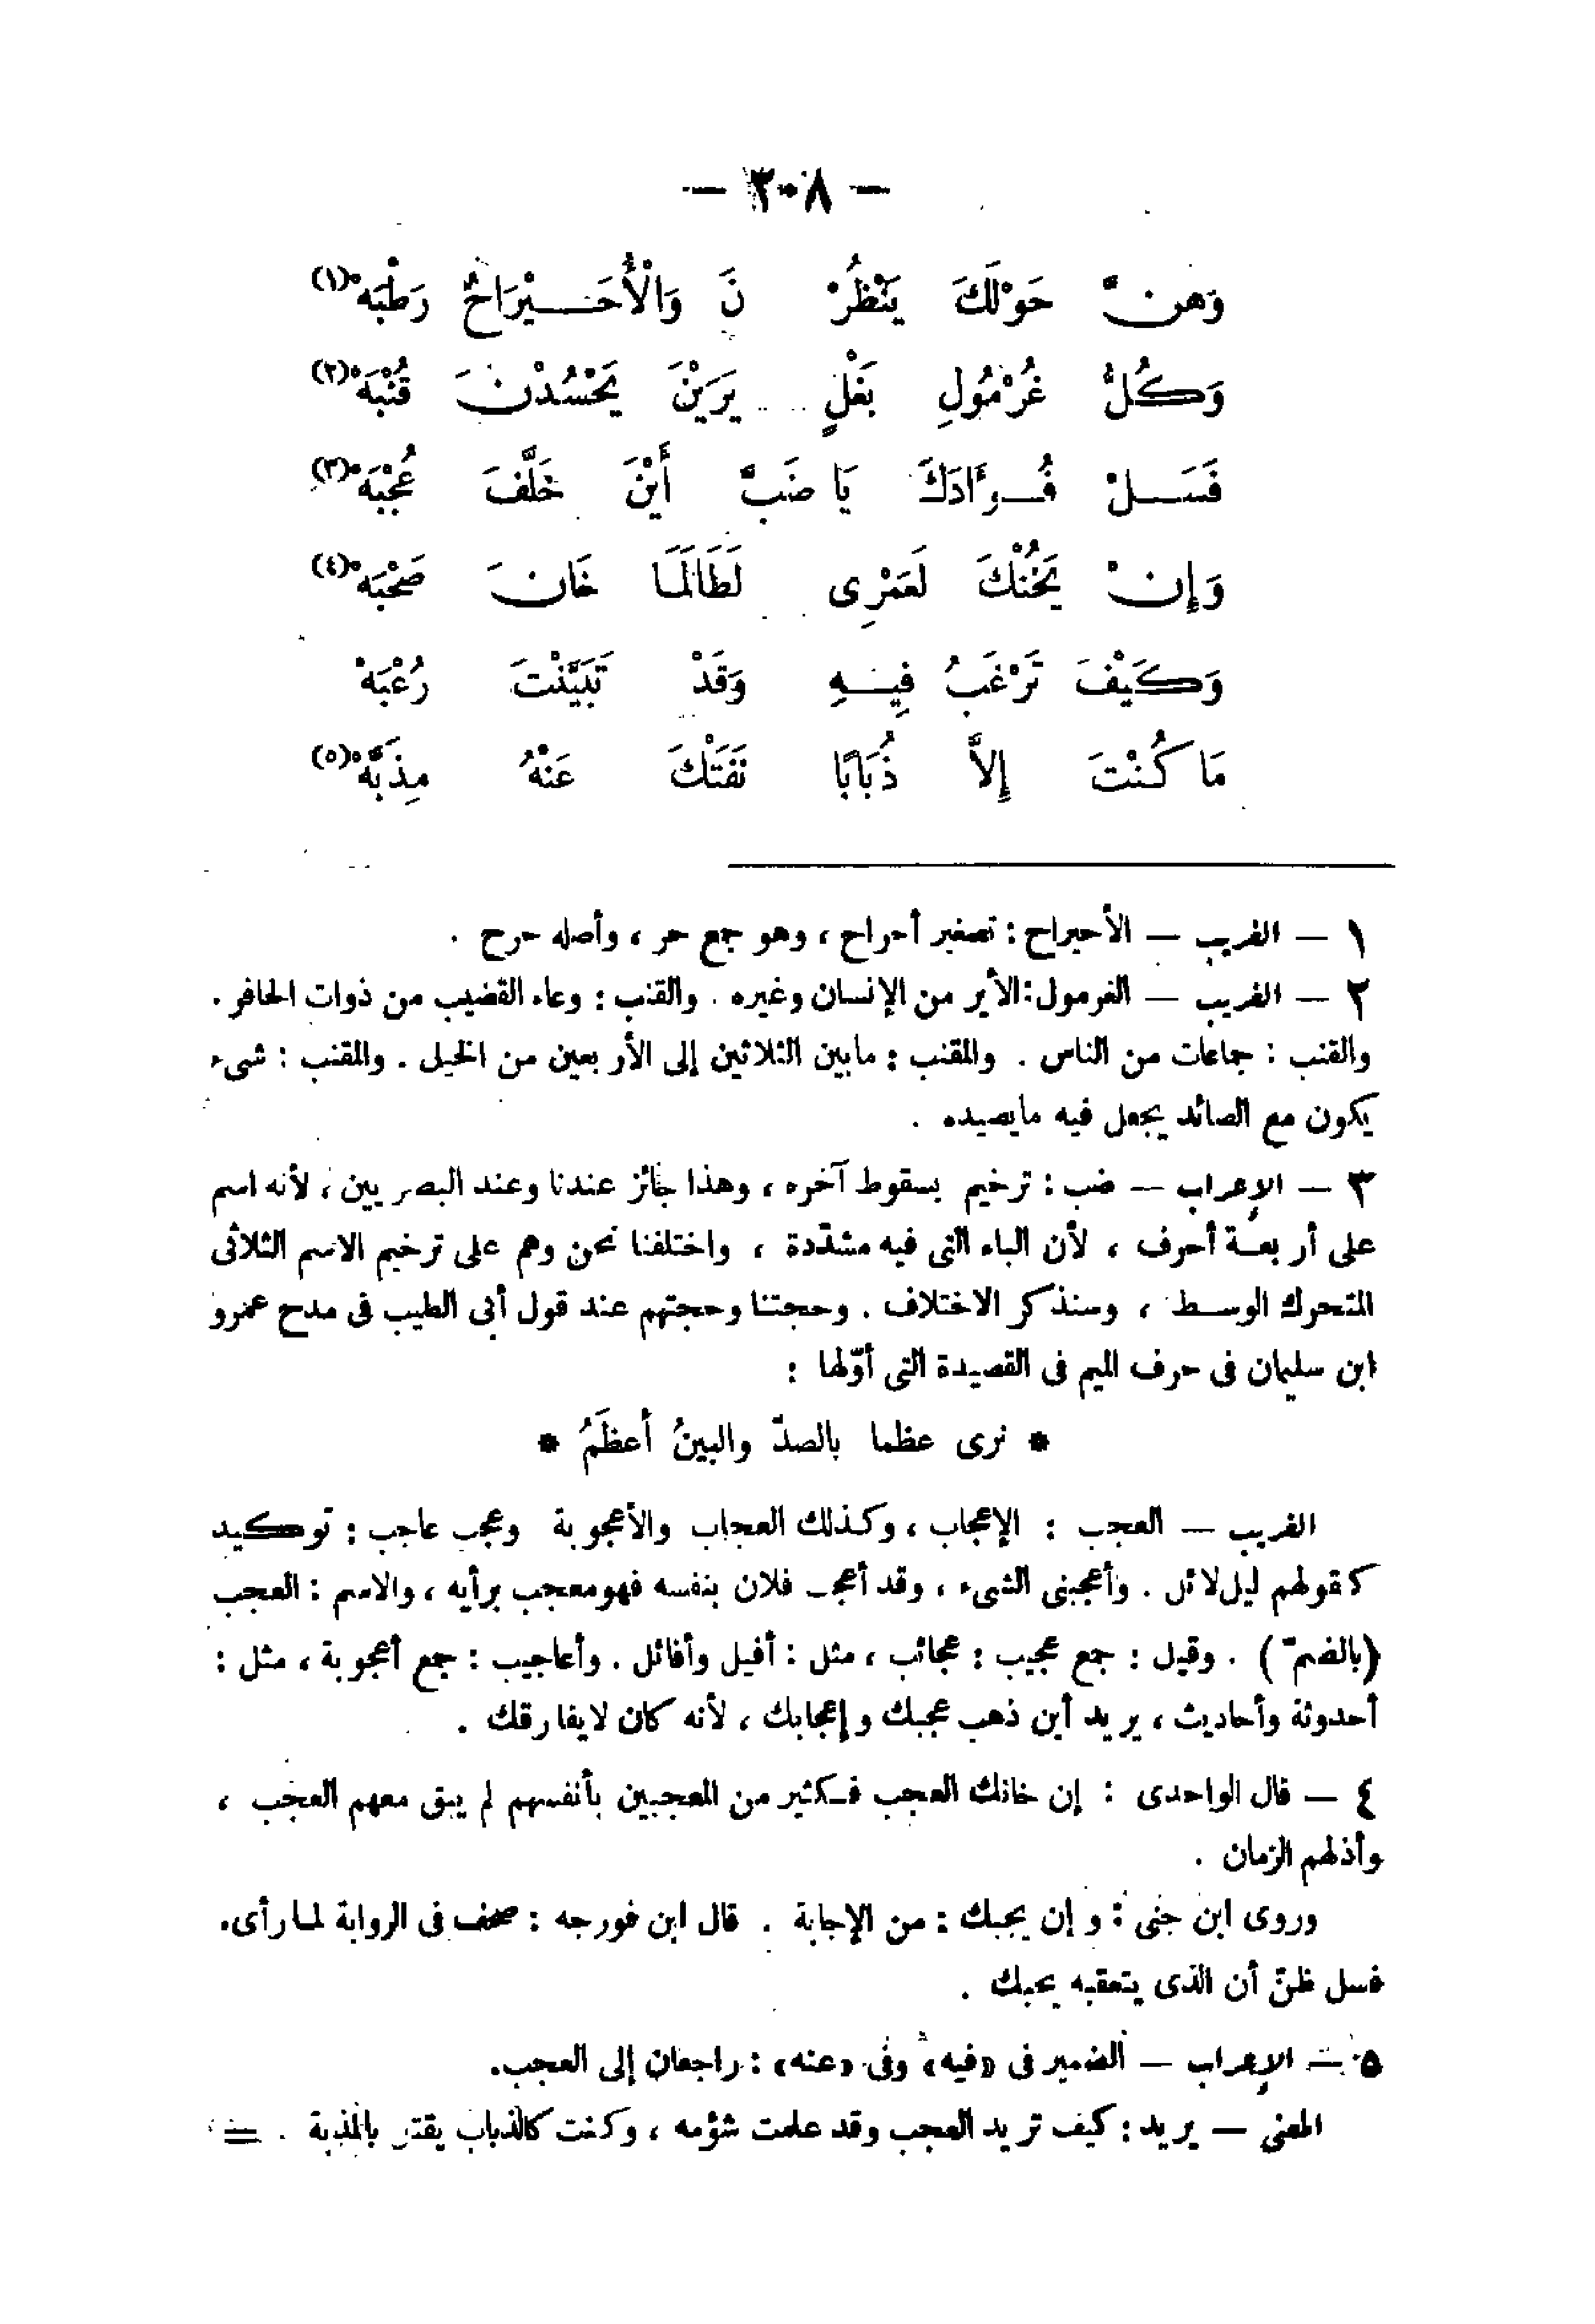 — ٢٠٨ —
وَهنَّ حَوْلَكَ يَنْظُرْ نَ وَالْأُحَيْرَاحُ رَطْبَهْ (١)
وَكُلُّ غُرْمُولِ بَغْلٍ يَرَيْنَ يَحْسُدْنَ قُنْبَهْ (٢)
فَسَلْ فُؤَادَكَ يَا ضَبَّ أَيْنَ خَلَّفَ عُجْبَهْ (٣)
وَإِنْ يَخُنْكَ لَعَمْرِى لَطَالَمَا خَانَ صَحْبَهْ (٤)
وَكَيْفَ تَرْغَبُ فِيهِ وَقَدْ تَبَيَّنْتَ رُعْبَهْ
مَا كُنْتَ إِلاَّ ذُبَابًا نَفَتْكَ عَنْهُ مِذَبَّهْ (٥)
١ — الغريب — الأحيراح : تصغير أحراح ، وهو جمع حر ، وأصله حرح .
٢ — الغريب — الغرمول : الأير من الإنسان وغيره . والقنب : وعاء القضيب من ذوات الحافر .
والقنب : جماعات من الناس . والمقنب : مابين الثلاثين إلى الأربعين من الخيل . والمقنب : شىء
يكون مع الصائد يجعل فيه مايصيده .
٣ — الإعراب — ضب : ترخيم بسقوط آخره ، وهذا جائز عندنا وعند البصريين ، لأنه اسم
على أربعة أحرف ، لأن الباء التى فيه مشدّدة ، واختلفنا نحن وهم على ترخيم الاسم الثلاثى
المتحرك الوسط ، وسنذكر الاختلاف . وحجتنا وحجتهم عند قول أبى الطيب فى مدح عمرو
ابن سليمان فى حرف الميم فى القصيدة التى أوّلها :
* نرى عظما بالصدّ والبينُ أعظَمُ *
الغريب — العجب : الإعجاب ، وكذلك العجاب والأعجوبة وعجب عاجب : توكيد
كقولهم ليل لائل . وأعجبنى الشىء ، وقد أعجب فلان بنفسه فهو معجب برأيه ، والاسم : العجب
(بالضمّ) . وقيل : جمع عجيب : عجائب ، مثل : أفيل وأفائل . وأعاجيب : جمع أعجوبة ، مثل :
أحدوثة وأحاديث ، يريد أين ذهب عجبك وإعجابك ، لأنه كان لايفارقك .
٤ — قال الواحدى : إن خانك العجب فكثير من المعجبين بأنفسهم لم يبق معهم العجب ،
وأذلهم الزمان .
وروى ابن جنى : وإن يجبك : من الإجابة . قال ابن فورجه : صحف فى الرواية لما رأى.
فسل ظنّ أن الذى يتعقبه يجبك .
٥ — الإعراب — الضمير فى «فيه» وفى «عنه» : راجعان إلى العجب.
المعنى — يريد : كيف تريد العجب وقد علمت شؤمه ، وكنت كالذباب بالمذبة . =